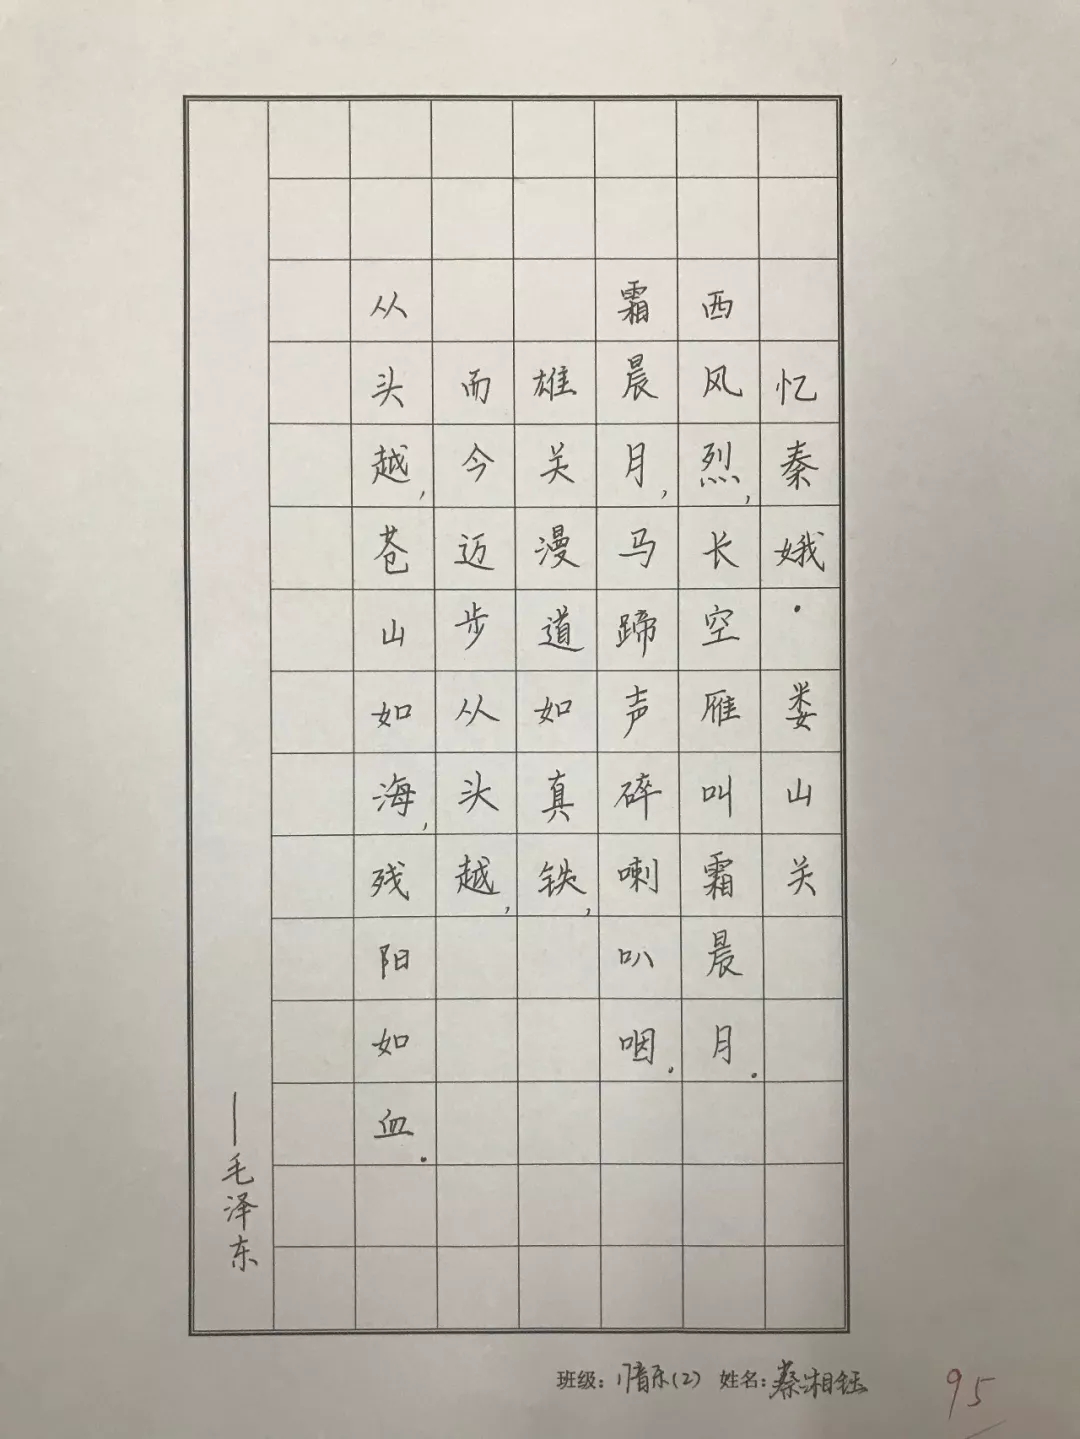 忆秦娥·娄山关
西风烈,长空雁叫霜晨月.
霜晨月,马蹄声碎喇叭咽.
雄关漫道如真铁,
而今迈步从头越,
从头越,苍山如海,残阳如血.
——毛泽东
班级: 音乐(2) 姓名:秦湘钰
95